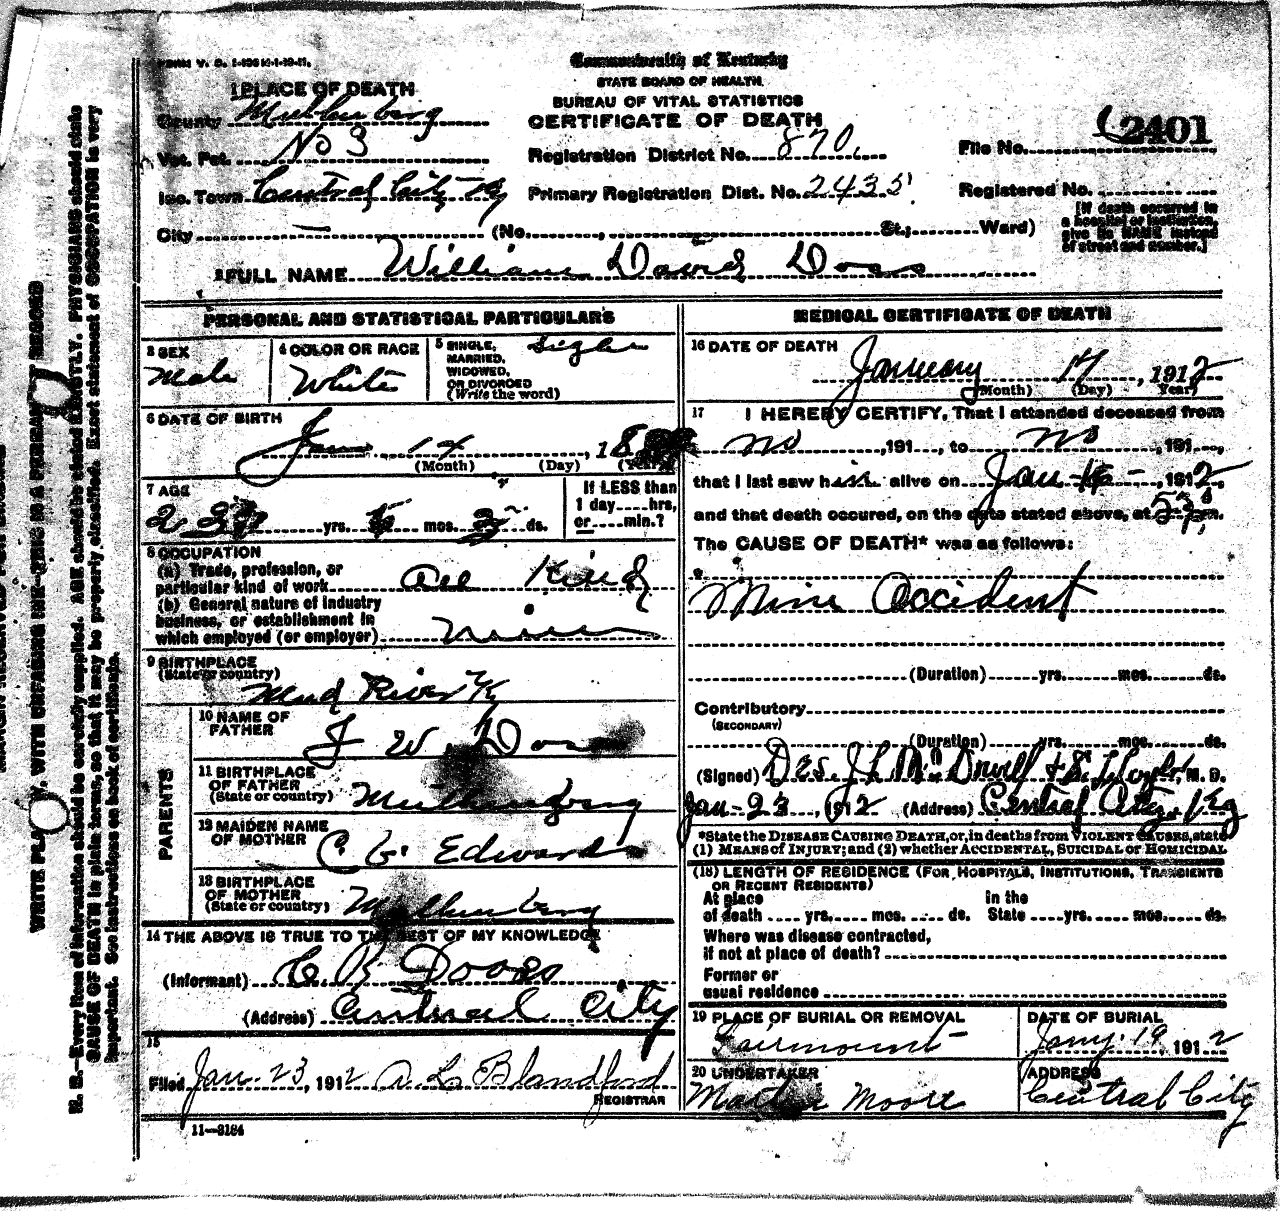 FORM V. S. 1-
Commonwealth of Kentucky
STATE BOARD OF HEALTH.
BUREAU OF VITAL STATISTICS
CERTIFICATE OF DEATH
1 PLACE OF DEATH
County Muhlenberg
Vot. Pct. No 3
Inc. Town Central City Ky
City (No. , St.; Ward)
Registration District No. 870
Primary Registration Dist. No. 2435
File No. 2401
Registered No.
[If death occurred in
a hospital or institution,
give its NAME instead
of street and number.]
2 FULL NAME William David Doss
PERSONAL AND STATISTICAL PARTICULARS
3 SEX
Male
4 COLOR OR RACE
White
5 SINGLE,
MARRIED,
WIDOWED,
OR DIVORCED
(Write the word)
6 DATE OF BIRTH
Jan 14 , 18
(Month) (Day) (Year)
7 AGE
yrs. mos. ds.
If LESS than
1 day hrs,
or min.?
8 OCCUPATION
(a) Trade, profession, or
particular kind of work All Kind
(b) General nature of industry
business, or establishment in
which employed (or employer)
9 BIRTHPLACE
(State or country)
Mud River Ky
PARENTS
10 NAME OF
FATHER
J W. Doss
11 BIRTHPLACE
OF FATHER
(State or country) Muhlenberg
12 MAIDEN NAME
OF MOTHER
Edwards
13 BIRTHPLACE
OF MOTHER
(State or country) Muhlenberg
14 THE ABOVE IS TRUE TO THE BEST OF MY KNOWLEDGE
(Informant) C. R. Dooss
(Address) Central City
15
Filed Jan. 23, 1912 A. L. Blandford
REGISTRAR
11—3184
MEDICAL CERTIFICATE OF DEATH
16 DATE OF DEATH
January 17 , 1912
(Month) (Day) Year)
17 I HEREBY CERTIFY, That I attended deceased from
no ,191 , to no , 191 ,
that I last saw him alive on Jan , 1912,
and that death occured, on the date stated above, at m.
The CAUSE OF DEATH* was as follows:
Mine Accident
(Duration) yrs. mos. ds.
Contributory
(SECONDARY)
(Duration) yrs. mos. ds.
(Signed) Drs. J L McDowell , M. D.
Jan-23 , 1912 (Address) Central City, Ky
*State the DISEASE CAUSING DEATH, or, in deaths from VIOLENT CAUSES, state
(1) MEANS OF INJURY; and (2) whether ACCIDENTAL, SUICIDAL or HOMICIDAL
(18) LENGTH OF RESIDENCE (FOR HOSPITALS, INSTITUTIONS, TRANSIENTS
OR RECENT RESIDENTS)
At place in the
of death yrs. mos. ds. State yrs. mos. ds.
Where was disease contracted,
if not at place of death?
Former or
usual residence
19 PLACE OF BURIAL OR REMOVAL
Fairmount
DATE OF BURIAL
Jany. 19 1912
20 UNDERTAKER
Martin Moore
ADDRESS
Central City
WRITE PLAINLY, WITH UNFADING INK—THIS IS A PERMANENT RECORD
N. B.—Every item of information should be carefully supplied. AGE should be stated EXACTLY. PHYSICIANS should state
CAUSE OF DEATH in plain terms, so that it may be properly classified. Exact statement of OCCUPATION is very
important. See instructions on back of certificate.